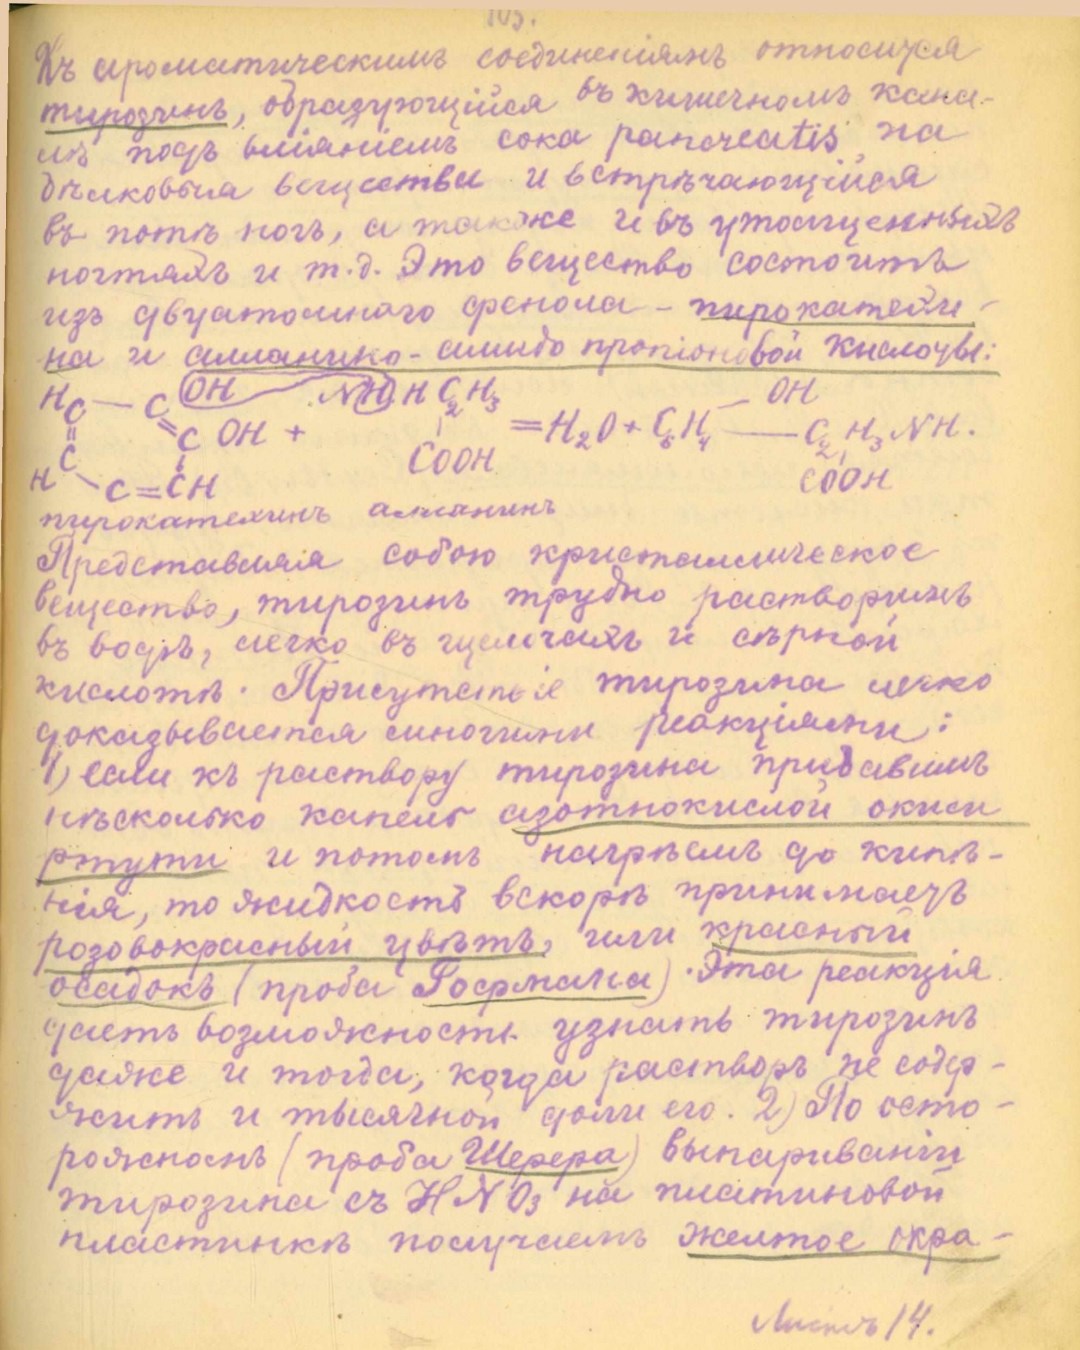 105.
Къ ароматическимъ соединенiямъ относится
тирозинъ, образующiйся въ кишечномъ кана-
лѣ подъ влiянiемъ сока pancreatis на
бѣлковыя вещества и встрѣчающiйся
въ потѣ ногъ, а также и въ утолщенныхъ
ногтяхъ и т.д. Это вещество состоитъ
изъ двуатомнаго фенола - пирокатехи-
на и аланино-амидо пропiоновой кислоты:
H C — C OH NHOH C2H3 OH
C C OH + COOH = H2O + C6H4 — C2H3NH.
H C = CH COOH
пирокатехинъ аланинъ
Представляя собою кристаллическое
вещество, тирозинъ трудно растворимъ
въ водѣ, легко въ щелочахъ и сѣрной
кислотѣ. Присутствiе тирозина легко
доказывается многими реакцiями:
1) если къ раствору тирозина прибавимъ
нѣсколько капель азотнокислой окиси
ртути и потомъ нагрѣемъ до кипѣ-
нiя, то жидкость вскорѣ принимаетъ
розовокрасный цвѣтъ, или красный
осадокъ (проба Гофмана). Эта реакцiя
даетъ возможность узнать тирозинъ
даже и тогда, когда растворъ не содер-
житъ и тысячной доли его. 2) По осто-
рожномъ (проба Шерера) выпариванiи
тирозина съ HNO3 на платиновой
пластинкѣ получаемъ желтое окра-
Листъ 14.